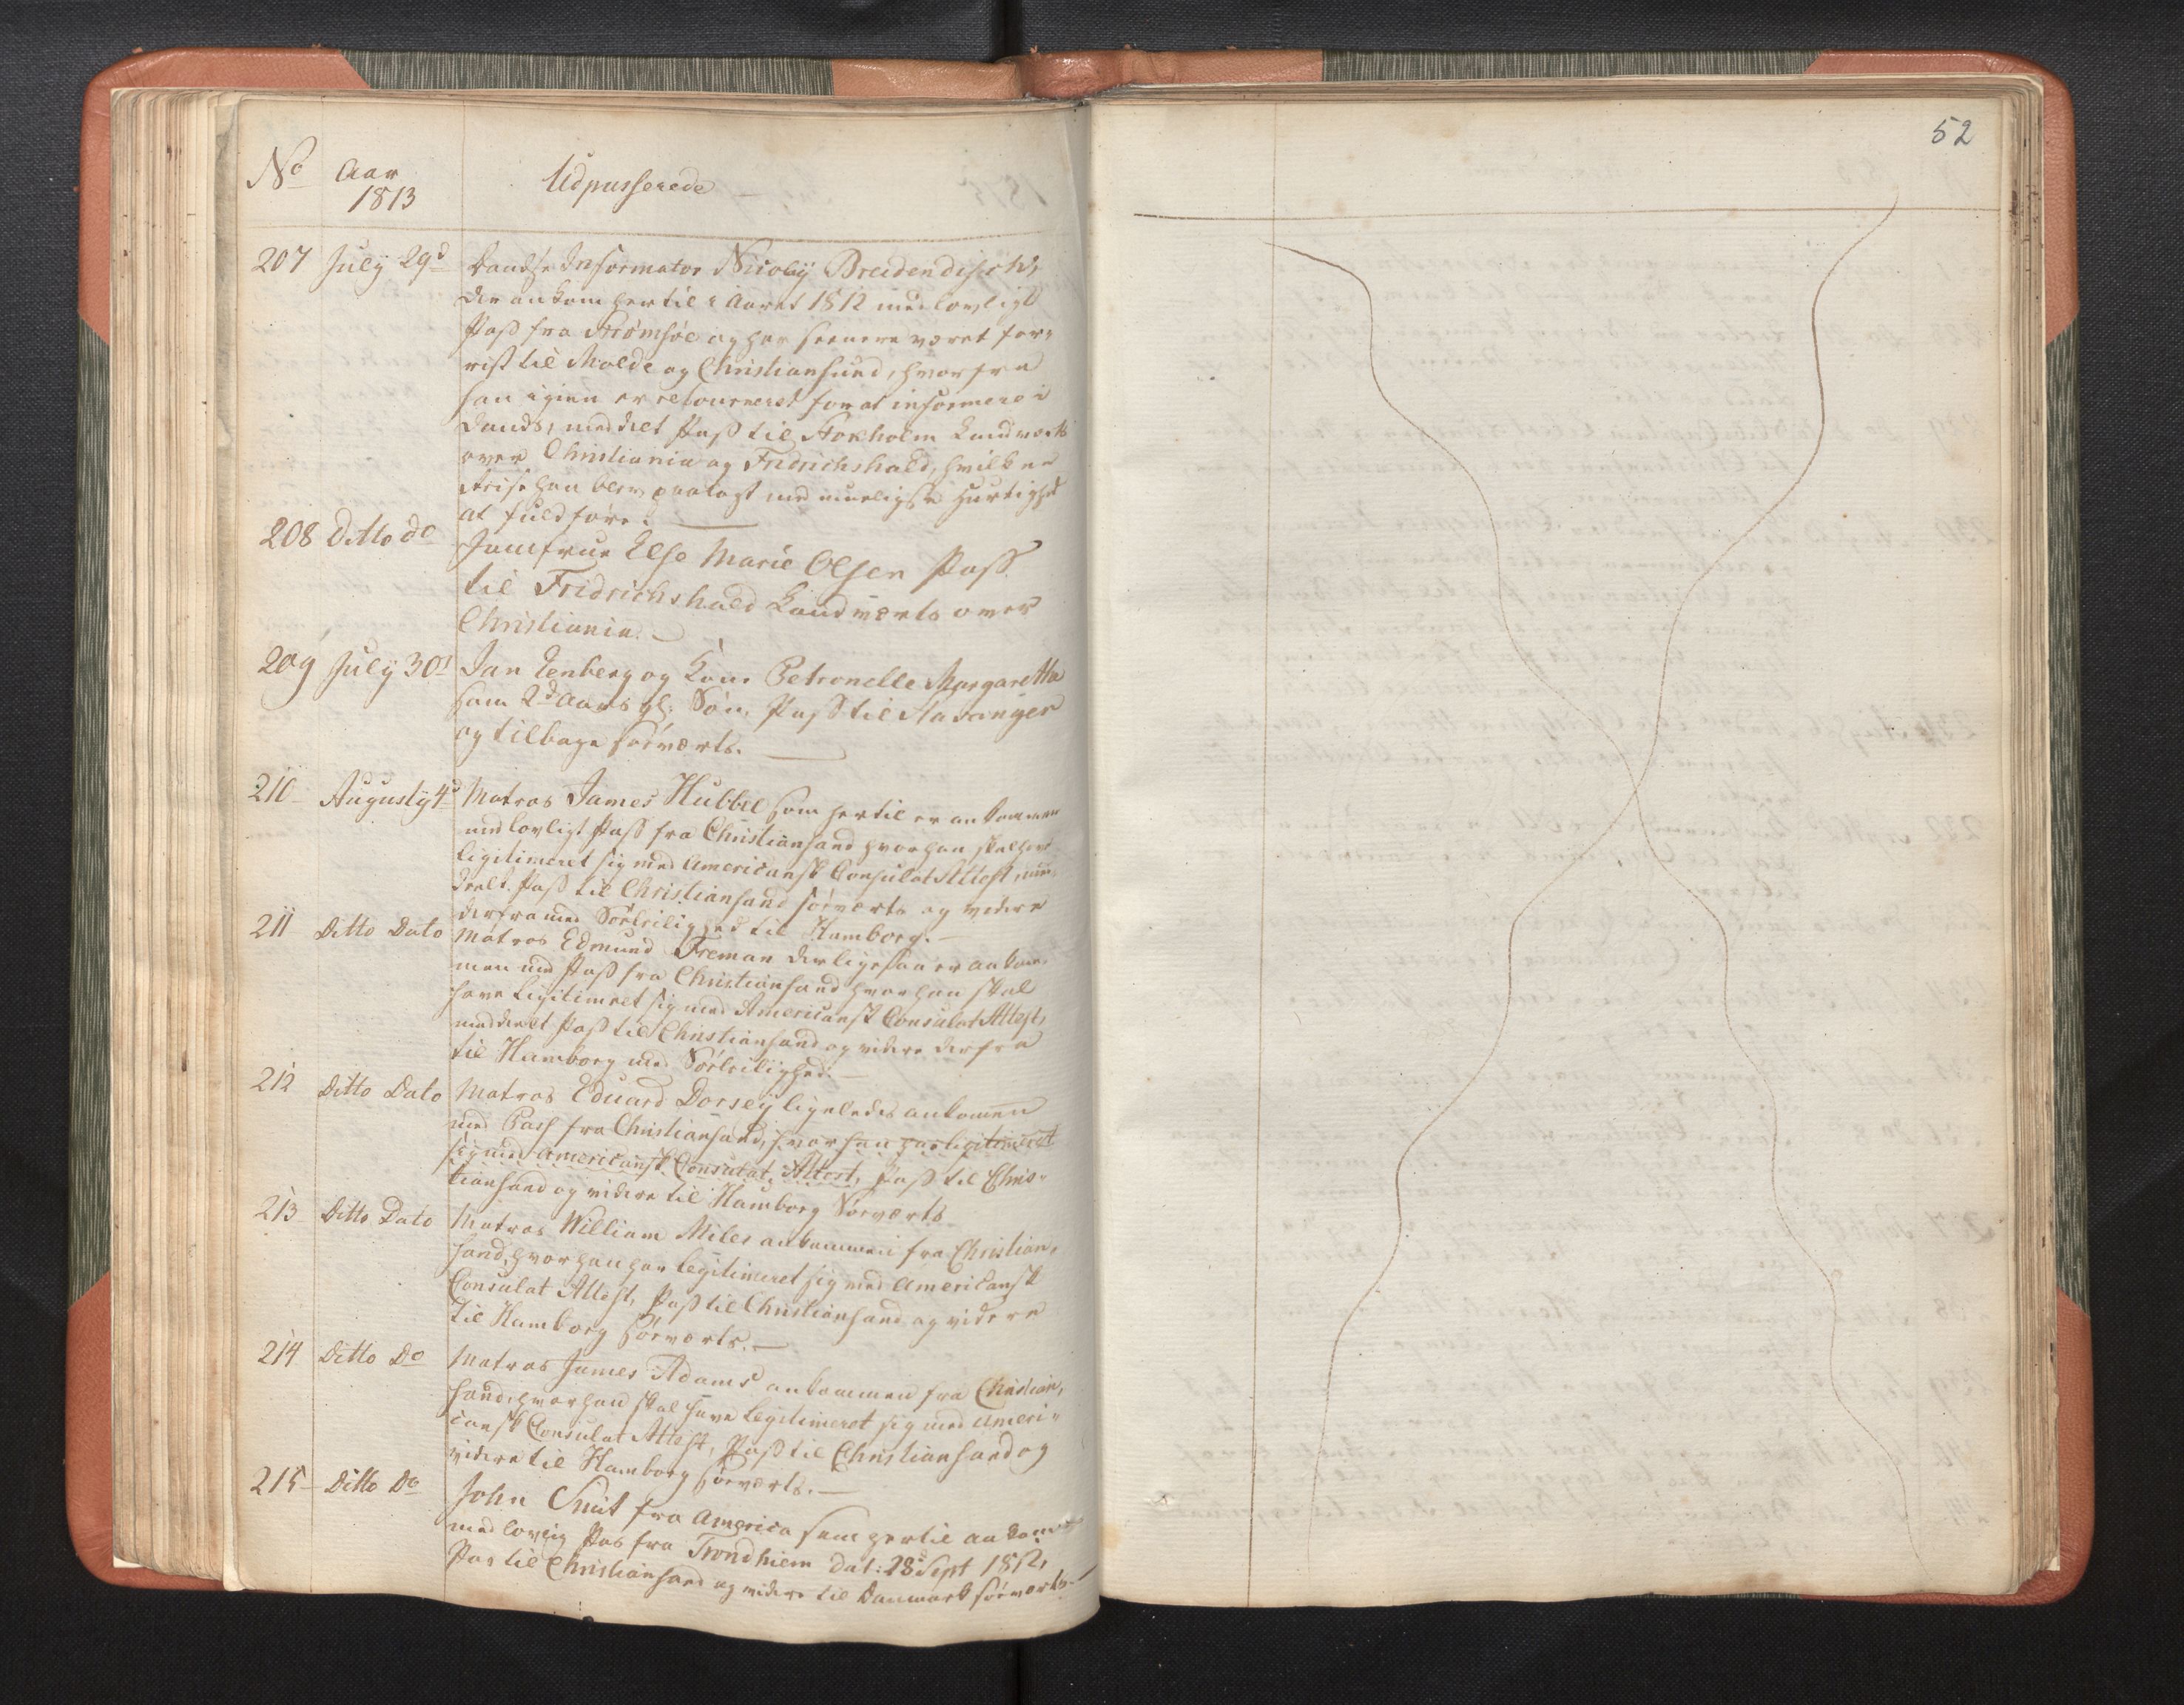 52
No Aar Udpasserede
1813
207 July 29d Dandse Informator Nicolij Breidendisch,
der ankom hertil i Aaret 1812 med lovligt
Pass fra Strømsöe og har senere været for,,
rist til Molde og Christiansund, hvorfra
han igien er retourneret for at informere i
Dands, meddelt Pass til Stokholm Landverts
over Christiania og Fridrichshald, hvilken
Reise han blev paalagt med mueligste Hurtighed
at fuldföre.
208 Ditto do Jomfrue Else Marie Olsen Pass
til Fridrichshald Landverts over
Christiania.
209 July 30t Jan Eenberg og Kone Petronelle Margaretha
samt 2d Aars gl. Sön, Pass til Stavanger
og tilbage söeverts.
210 Augusty 4d Matros James Hubbel som hertil er ankommen
med lovligt Pass fra Christiansand hvor han skal have
ligitimeret sig med Americansk Consulat Attest, med,,
deelt Pass til Christiansand söeverts og videre
derfra med Söeleilighed til Hamborg.
211 Ditto Dato Matros Edmund Freman der ligesaa er ankom,,
men med Pass fra Christiansand hvor han skal
have Legitimeret sig med Americansk Consulat Attest,
meddeelt Pass til Christiansand og videre derfra
til Hamborg med Söeleilighed.
212 Ditto Dato Matros Eduard Dorsey ligeledes ankommen
med Pass fra Christiansand, hvor han har legitimeret
sig med Americansk Consulat Attest, Pass til Chris,,
tiansand og videre til Hamborg Söeverts
213 Ditto Dato Matros William Miles ankommen fra Christian,,
sand, hvor han har Legitimeret sig med Americansk
Consulat Attest, Pass til Christiansand og videre
til Hamborg söeverts.
214 Ditto Do Matros James Adams ankommen fra Christian,,
sand, hvor han skal have Legitimeret sig med Ameri,,
cansk Consulat Attest, Pass til Christiansand og
videre til Hamborg söeverts.
215 Ditto Do John Smit fra America som hertil ankom
med lovlig Pas fra Trondhiem dat: 28d Sept 1812,
Pas til Christiansand og videre til Danmark söeverts.